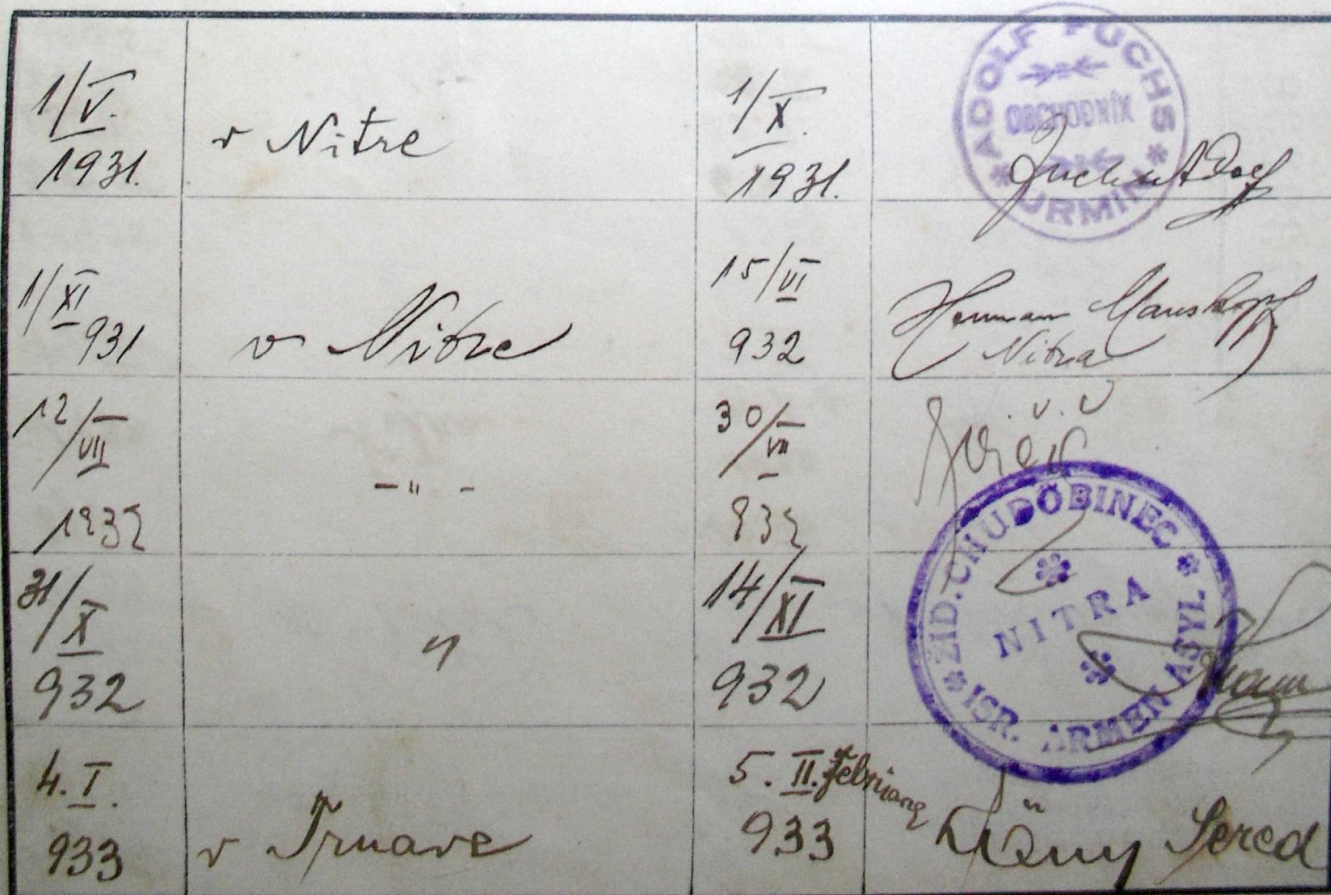 1/V.
1931.
v Nitre
1/X.
1931.
* ADOLF FUCHS *
OBCHODNÍK
URMIN
1/XI
931
v Nitre
15/VI
932
Herman Mauskopf
Nitra
12/VII
1932
-"-
30/VII
932
31/X
932
"
14/XI
932
* ŽID. CHUDOBINEC *
NITRA
ISR. ARMEN ASYL
4. I.
933
v Trnave
5. II. februara
933
Sered